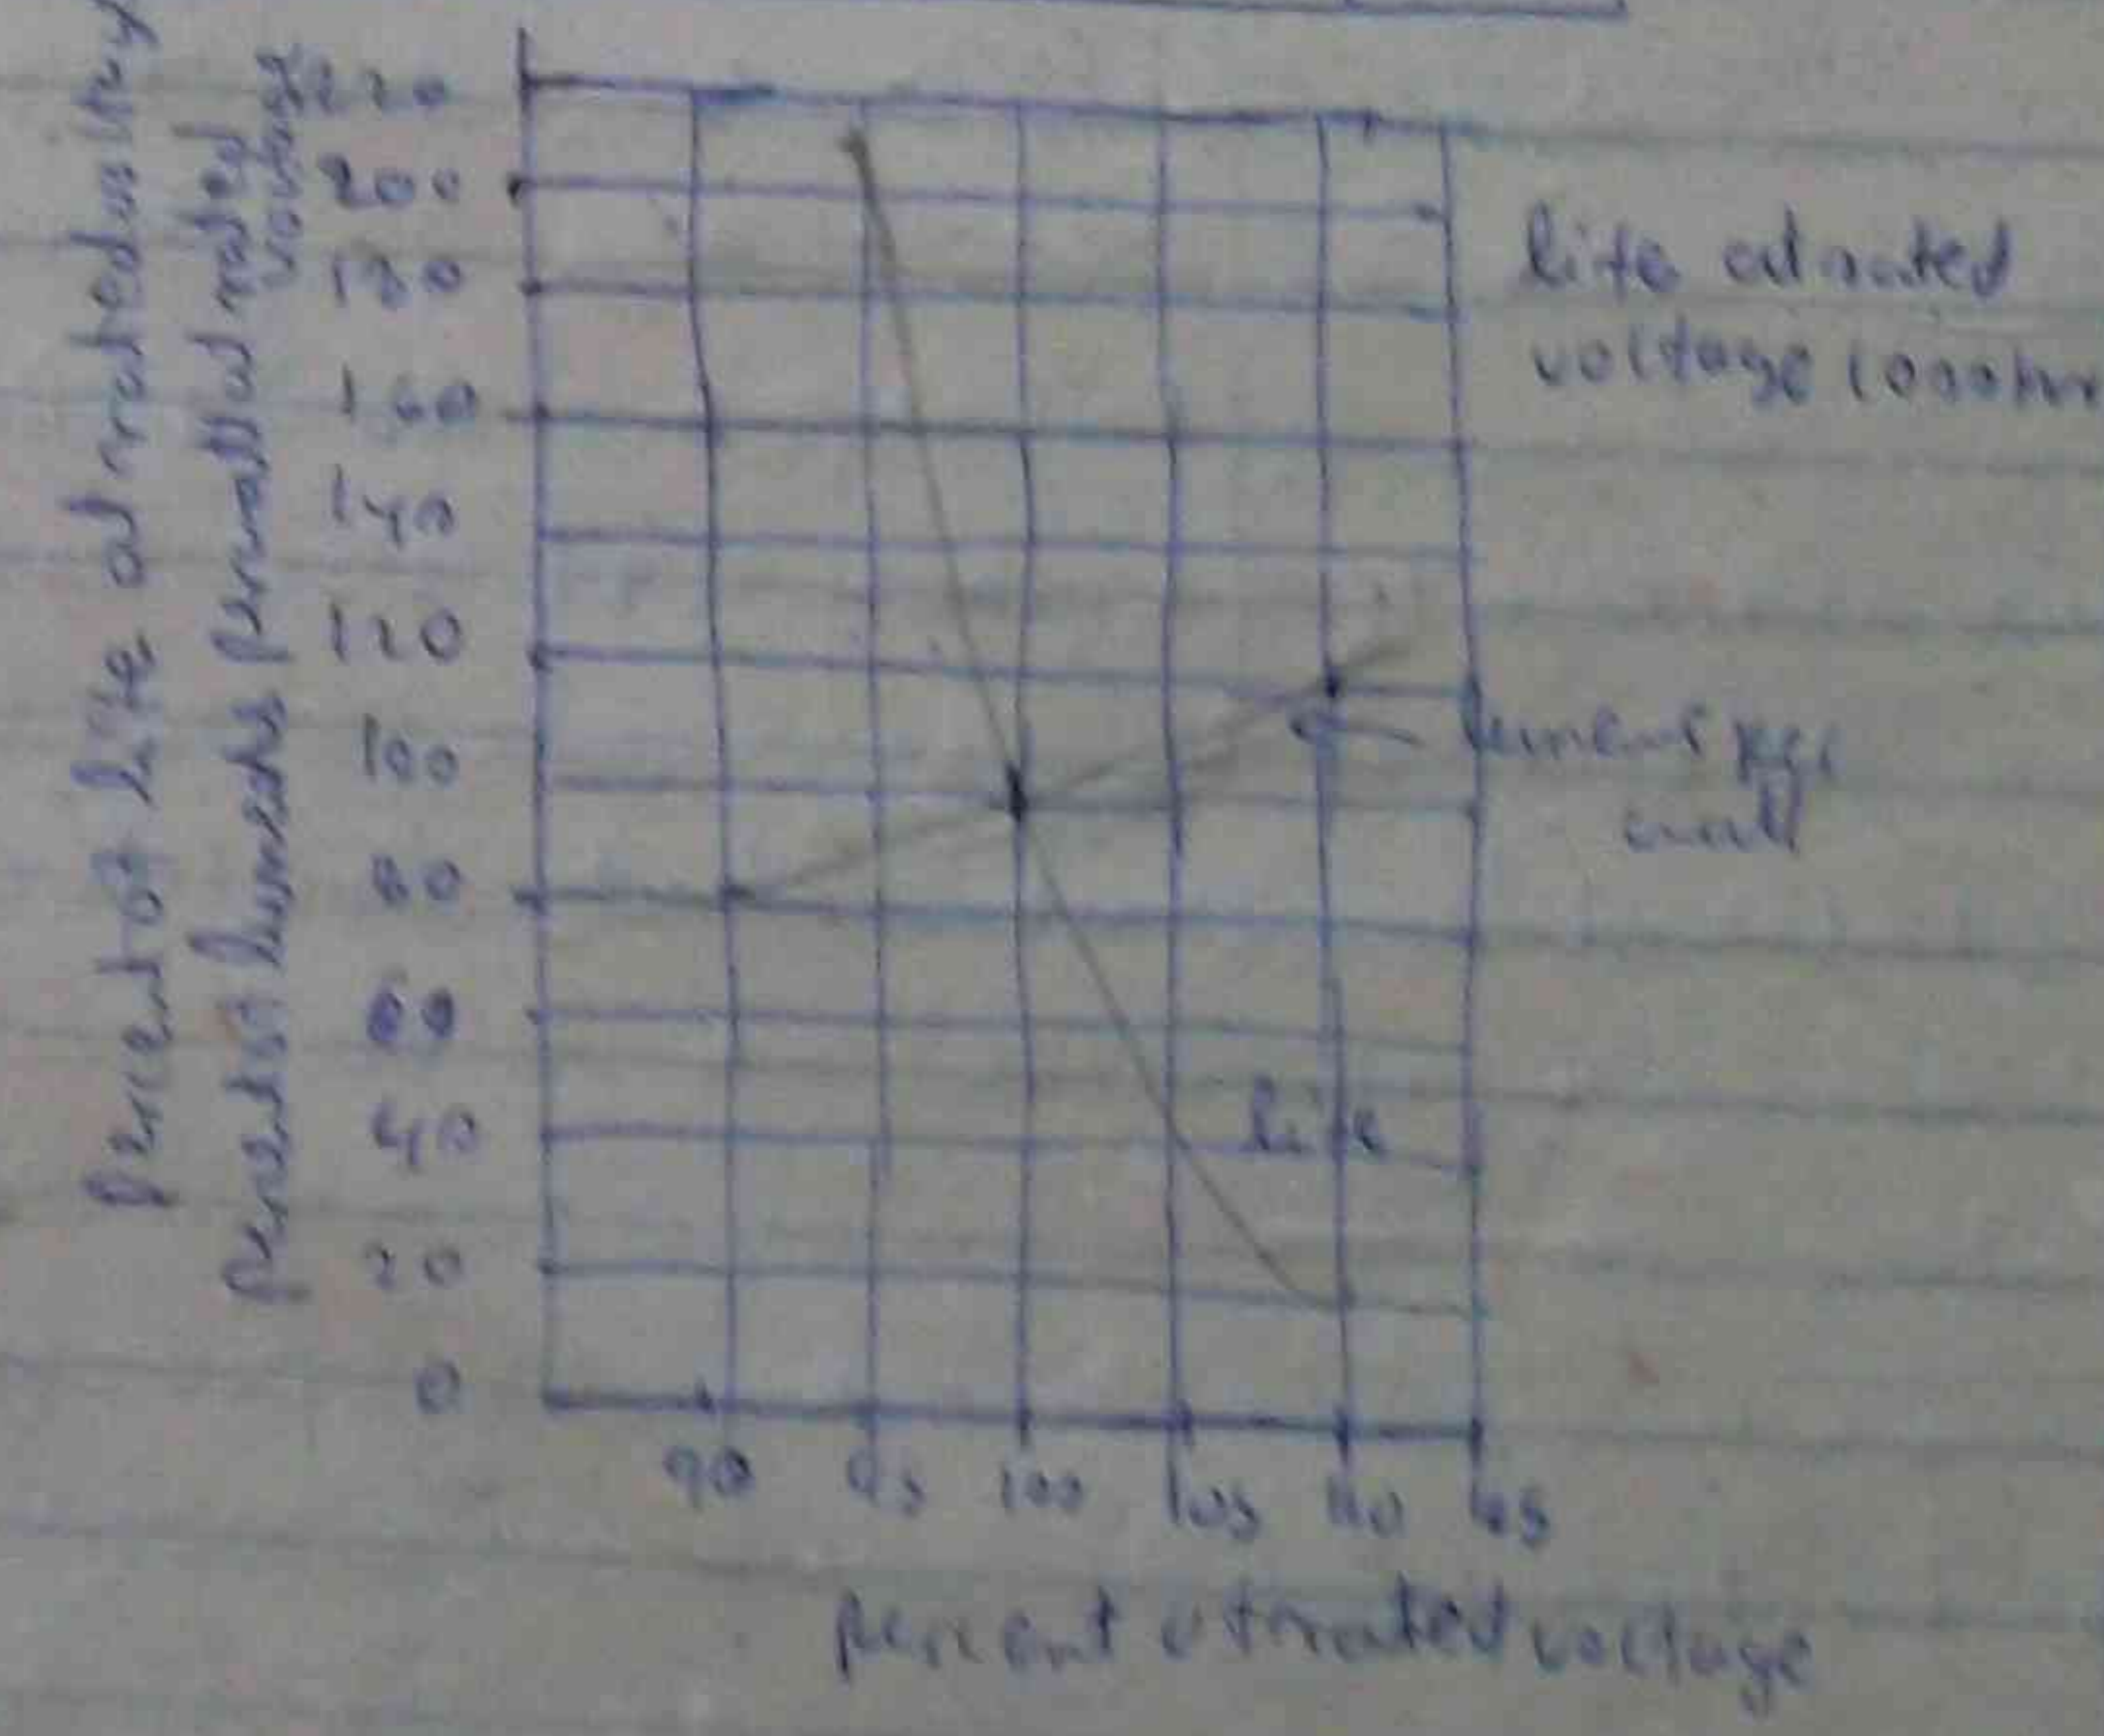 Percent of life at rated
percent lumens per watt at rated
voltage
220
200
180
160
140
120
100
80
60
40
20
0
life at rated
voltage 1000hr
lumens per
watt
life
90 95 100 105 110
percent of rated voltage